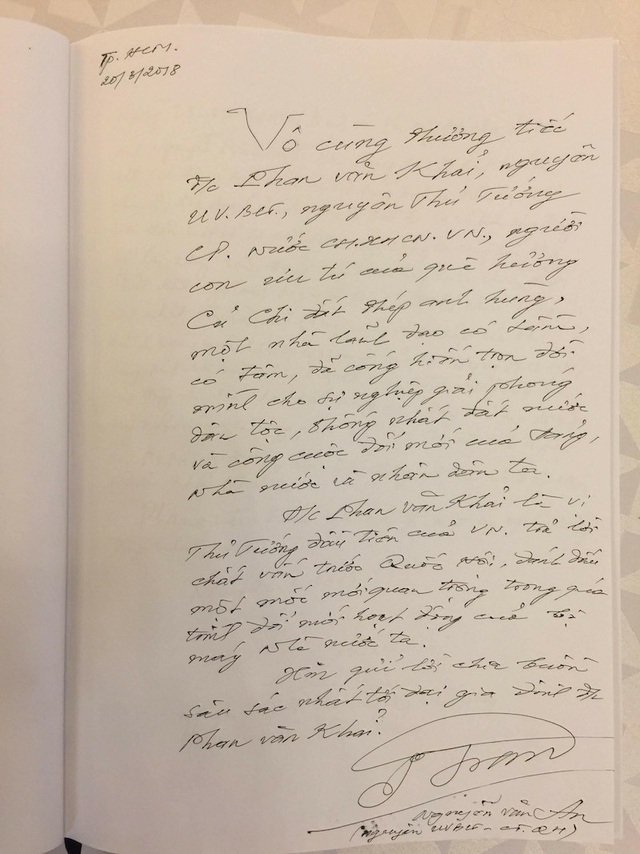 Tp. HCM.
20/3/2018
Vô cùng thương tiếc
đ/c Phan Văn Khải, nguyên
UV.BCT., nguyên Thủ Tướng
CP. Nước CH.XHCN.VN., người
con ưu tú của quê hương
Củ Chi đất thép anh hùng,
một nhà lãnh đạo có tầm,
có tâm, đã cống hiến trọn đời
mình cho sự nghiệp giải phóng
dân tộc, thống nhất đất nước
và công cuộc đổi mới của Đảng,
Nhà nước và nhân dân ta.
Đ/c Phan Văn Khải là vị
Thủ Tướng đầu tiên của VN. trả lời
chất vấn trước Quốc Hội, đánh dấu
một mốc mới quan trọng trong quá
trình đổi mới hoạt động của bộ
máy Nhà nước ta.
Xin gửi lời chia buồn
sâu sắc nhất tới đại gia đình đ/c
Phan Văn Khải.
Nguyễn Văn An
(Nguyên UVBCT - CT. QH)